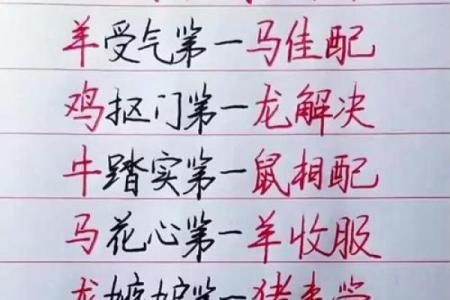 羊受气第一马佳配
鸡抠门第一龙解决
牛踏实第一鼠相配
马花心第一羊收服
龙嫉妒第一猪